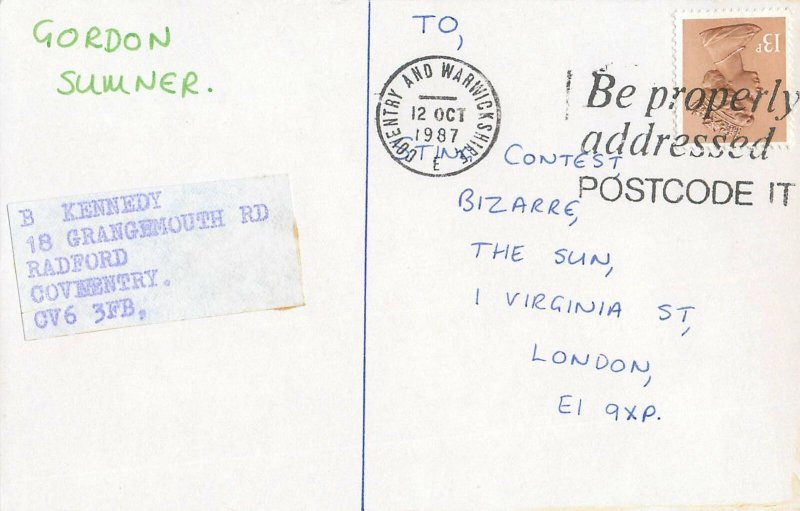 GORDON
SUMNER.
B KENNEDY
18 GRANGEMOUTH RD
RADFORD
COVENTRY.
CV6 3FB,
TO,
STING CONTEST,
BIZARRE,
THE SUN,
1 VIRGINIA ST,
LONDON,
E1 9XP.
COVENTRY AND WARWICKSHIRE
12 OCT
1987
E
Be properly
addressed
POSTCODE IT
13P